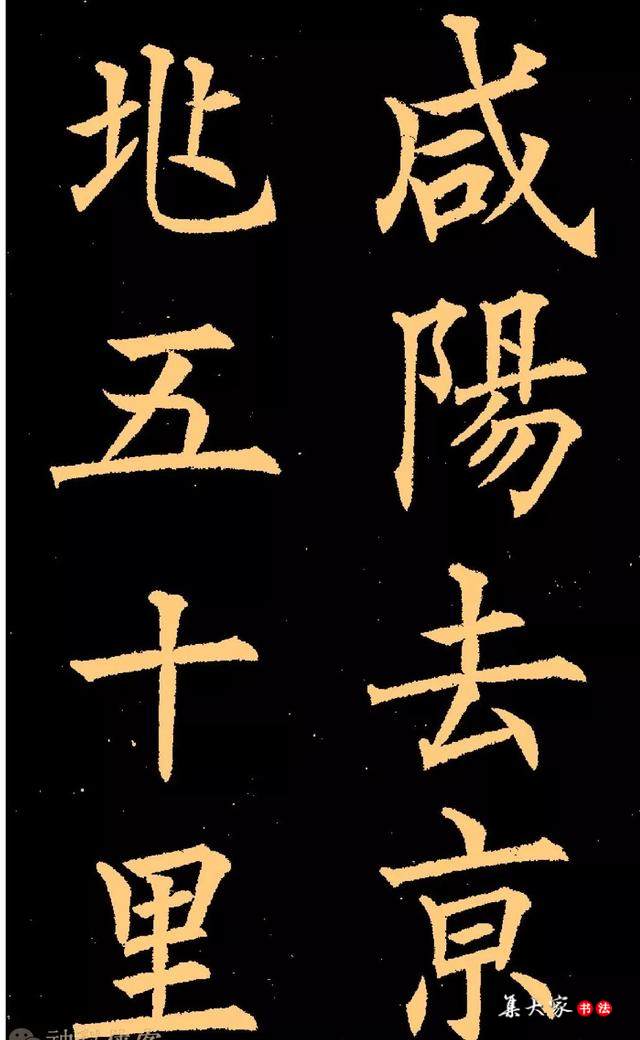 咸陽去京
兆五十里
集大家书法